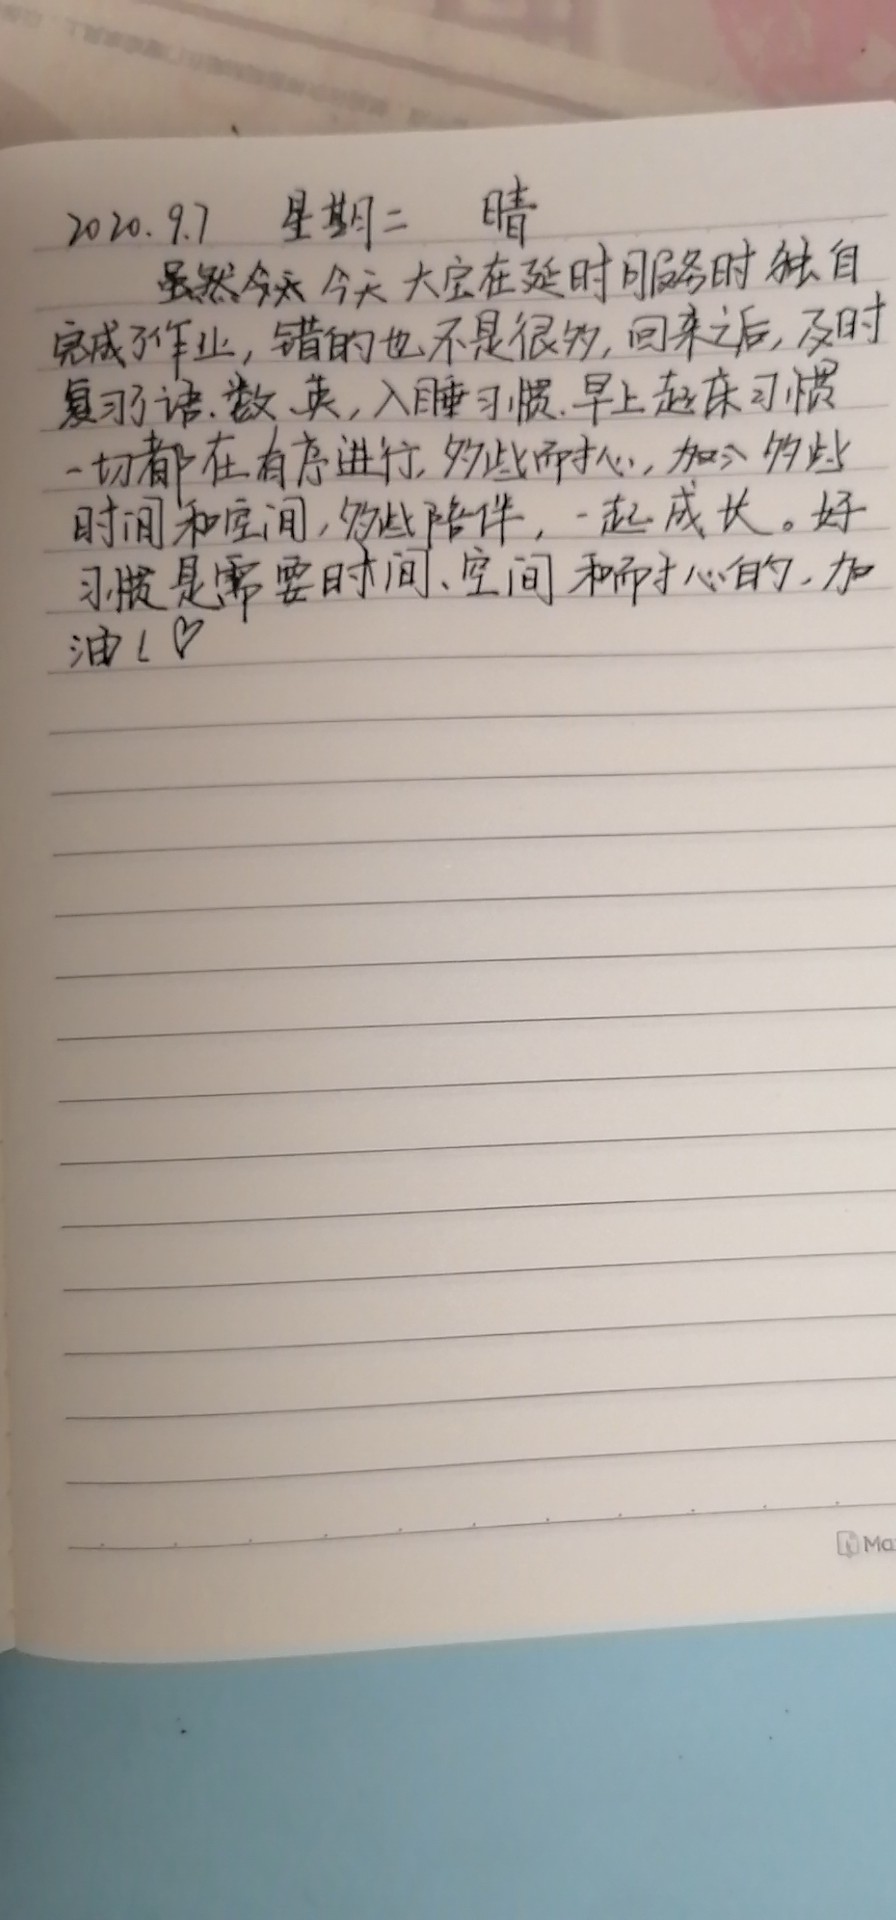 2020.9.7 星期二 晴
今天大宝在延时服务时独自
完成了作业，错的也不是很多，回来之后，及时
复习了语、数、英，入睡习惯、早上起床习惯
一切都在有序进行，多些耐心，多些
时间和空间，多些陪伴，一起成长。好
习惯是需要时间、空间和耐心的，加
油！♡
Ma